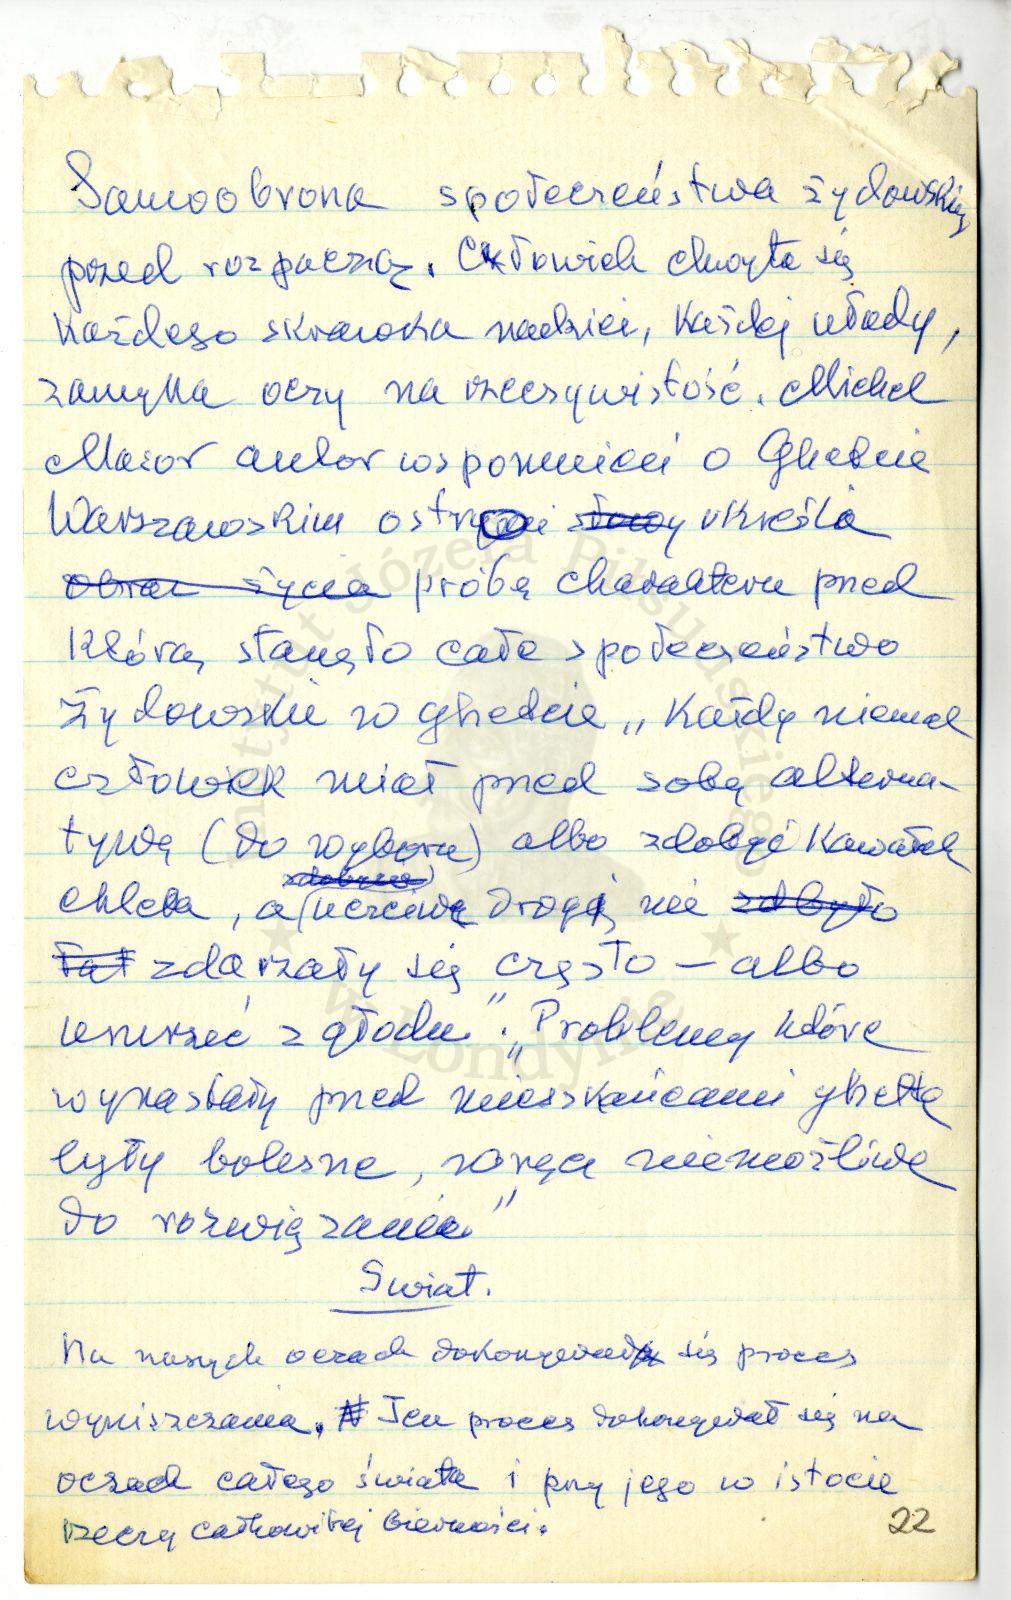 Samoobrona społeczeństwa żydowskiego
przed rozpaczą. Człowiek chwyta się
każdego skrawka nadziei, każdej władzy,
zamyka oczy na rzeczywistość. Michel
Mazor autor wspomnień o Ghetcie
Warszawskim ostro określa
obraz życia próbę charakteru przed
którą stanęło całe społeczeństwo
żydowskie w ghetcie „Każdy niemal
człowiek miał przed sobą alterna-
tywę (do wyboru) albo zdobyć kawałek
chleba, a uczciwą drogą nie
zdarzały się często – albo
umrzeć z głodu". „Problemy które
wyrastały przed mieszkańcami ghetta
były bolesne, wręcz niemożliwe
do rozwiązania."
Świat.
Na naszych oczach dokonywał się proces
wyniszczania. Ten proces dokonywał się na
oczach całego świata i przy jego w istocie
rzeczy całkowitej bierności.
22
Instytut Józefa Piłsudskiego
w Londynie